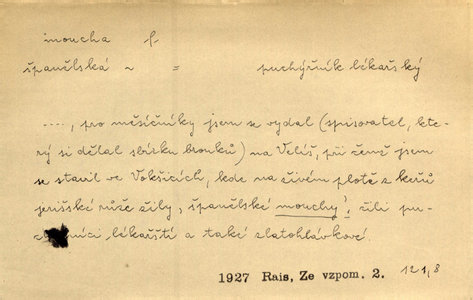 moucha f.
španělská ~ = puchýřník lékařský
...., pro měsíčníky jsem se vydal (spisovatel, kte-
rý si dělal sbírku brouků) na Veliš, při čemž jsem
se stavil ve Vokšicích, kde na živém plotě z keřů
jeříšské růže žily, španělské mouchy', čili pu-
níci, lékařští a také zlatohlávkové.
1927 Rais, Ze vzpom. 2. 121,8